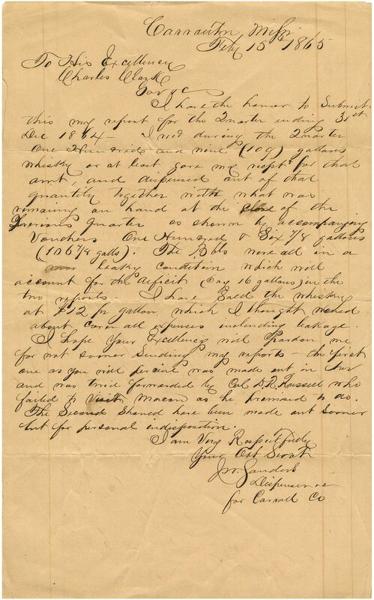 Carrollton Missi
Feby 15th 1865
To His Excellency
Charles Clark
Gov &c
I have the honor to submit
this my report for the Quarter ending 31st
Dec 1864 — I recd during the Quarter
One Hundred and nine (109) gallons
whisky or at least gave my rect for that
amt, and dispensed out of that
quantity together with what was
remaining on hand at the close of the
previous Quarter as shown by accompanying
Vouchers One Hundred & Six 7/8 gallons
(106 7/8 galls). The Bbls were all in a
very leaky condition which will
account for the deficit (say 16 gallons) in the
two reports. I have sold the whisky
at $12 pr gallon which I thought would
about cover all expenses including leakage.
I hope Your Excellency will pardon me
for not sooner sending my reports — the first
one as you will perceive was made out in
and was to be forwarded by Col D.R. Russell who
failed to visit Macon as he promised to do.
The Second Should have been made out sooner
but for personal indisposition.
I am Very Respectfully
Your Obt Servt
J W Sanders
Dispenser
for Carroll Co